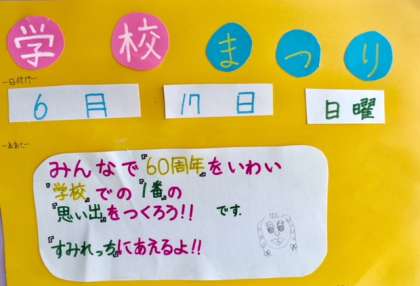 学校まつり
ー日付けー
6月 17日 日曜
ーめあてー
みんなで『60周年』をいわい
『学校』での『1番』の
『思い出』をつくろう!! です.
『すみれっち』にあえるよ!!